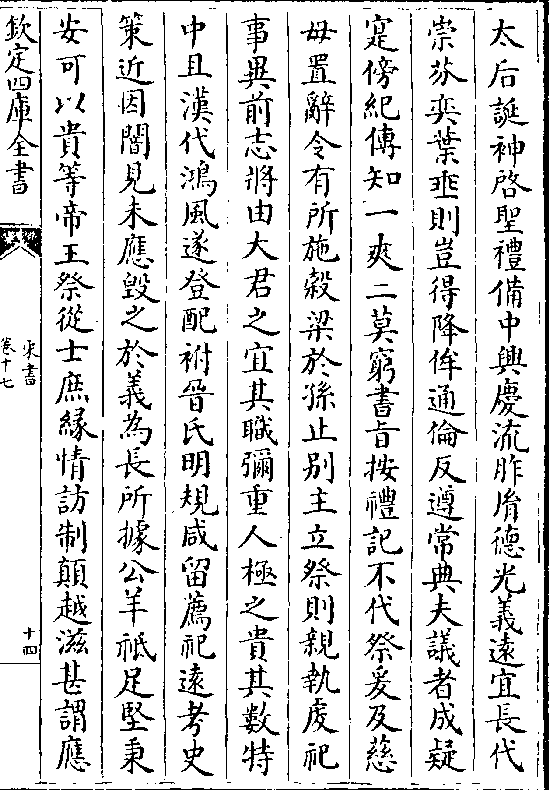 太后誕神啓聖禮備中興慶流胙𦙍德光義遠宜長代
崇芬奕葉垂則豈得降侔通倫反遵常典夫議者成疑
寔傍紀傳知一爽二莫窮書旨按禮記不代祭爰及慈
母置辭令有所施穀梁於孫止别主立祭則親執虔祀
事異前志將由大君之宜其職彌重人極之貴其數特
中且漢代鴻風遂登配祔晉氏明規咸留薦祀遠考史
策近因闇見未應毁之於義為長所據公羊祗足堅秉
安可以貴等帝王祭從士庶緣情訪制顛越滋甚謂應
欽定四庫全書
宋書
卷十七
十四